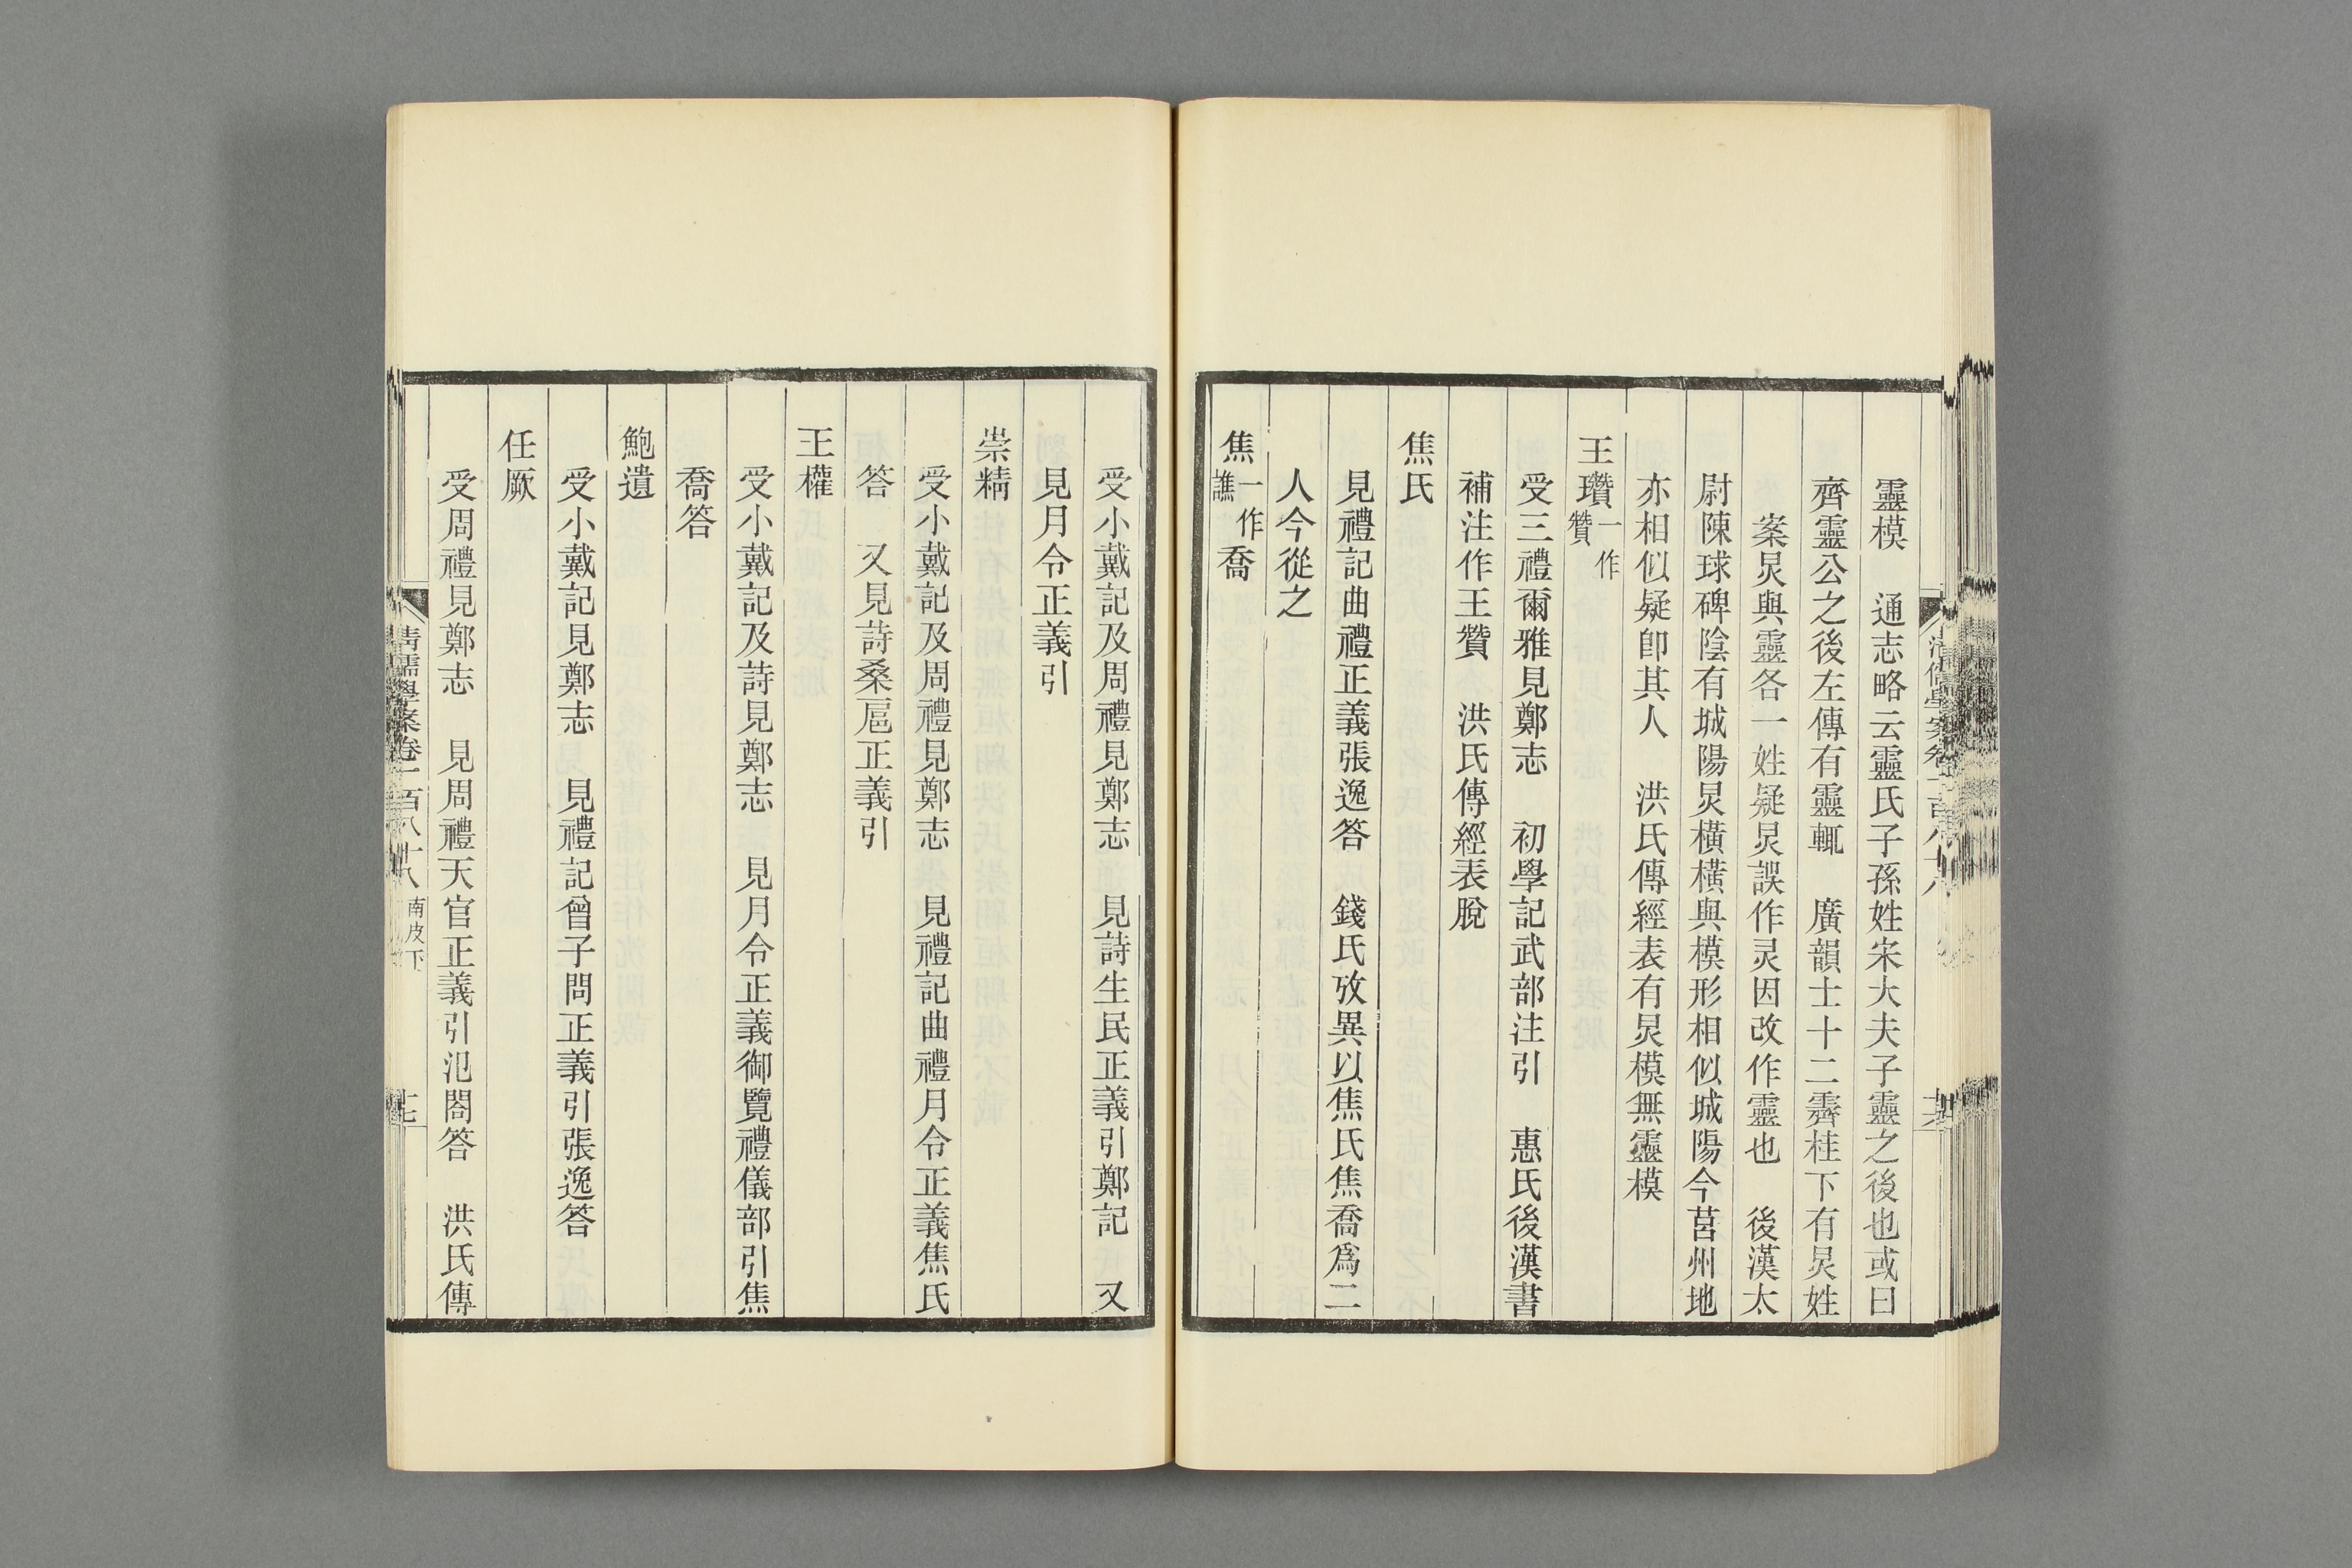 靈模　通志略云靈氏子孫姓宋大夫子靈之後也或曰
齊靈公之後左傳有靈輒　廣韻士十二霽桂下有炅姓
案炅與靈各一姓疑炅誤作灵因改作靈也　後漢太
尉陳球碑陰有城陽炅橫橫與模形相似城陽今莒州地
亦相似疑卽其人　洪氏傳經表有炅模無靈模
王瓚一作贊
受三禮爾雅見鄭志　初學記武部注引　惠氏後漢書
補注作王贊　洪氏傳經表脫
焦氏
見禮記曲禮正義張逸答　錢氏攷異以焦氏焦喬爲二
人今從之
焦一作譙喬
受小戴記及周禮見鄭志　見詩生民正義引鄭記　又
見月令正義引
崇精
受小戴記及周禮見鄭志　見禮記曲禮月令正義焦氏
答　又見詩桑扈正義引
王權
受小戴記及詩見鄭志　見月令正義御覽禮儀部引焦
喬答
鮑遺
受小戴記見鄭志　見禮記曾子問正義引張逸答
任厥
受周禮見鄭志　見周禮天官正義引氾閣答　洪氏傳
清儒學案卷一百八十八　南皮下　十七